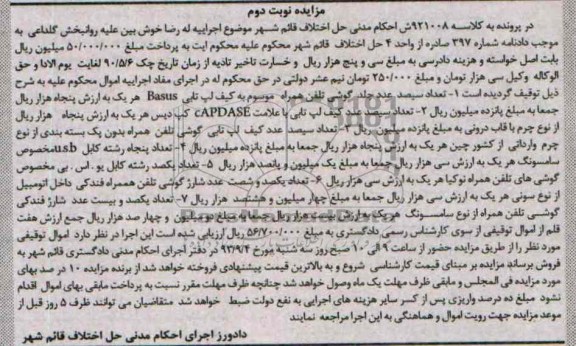 مزایده نوبت دوم
در پرونده به کلاسه ۹۲۱۰۰۸ش احکام مدنی حل اختلاف قائم شهر موضوع اجراییه له رضا خوش بین علیه روانبخش گلداعی به
موجب دادنامه شماره ۳۹۷ صادره از واحد ۴ حل اختلاف قائم شهر محکوم علیه محکوم ایت به پرداخت مبلغ ۵۰/۰۰۰/۰۰۰ میلیون ریال
بابت اصل خواسته و هزینه دادرسی به مبلغ سی و پنج هزار ریال و خسارت تاخیر تادیه از زمان تاریخ چک ۹۰/۵/۶ لغایت یوم الادا و حق
الوکاله وکیل سی هزار تومان و مبلغ ۲۵۰/۰۰۰ تومان نیم عشر دولتی در حق محکوم له در اجرای مفاد اجراییه اموال محکوم علیه به شرح
ذیل توقیف گردیده است ۱- تعداد سیصد عدد جلد گوشی تلفن همراه موسوم به کیف لپ تاپی Basus هر یک به ارزش پنجاه هزار ریال
جمعا به مبلغ پانزده میلیون ریال ۲- تعداد کیف لپ تاپی با علامت CAPDASE کپ دیس هر یک به ارزش پنجاه هزار ریال
از نوع چرم با قاب درونی به مبلغ پانزده میلیون ریال ۳- تعداد سیصد عدد کیف لپ تاپی گوشی تلفن همراه بدون پک بسته بندی از نوع
چرم وارداتی از کشور چین هر یک به ارزش پنجاه هزار ریال جمعا به مبلغ پانزده میلیون ریال ۴- تعداد پنجاه رشته کابل u.s.b مخصوص
سامسونگ هر یک به ارزش سی هزار ریال جمعا به مبلغ یک میلیون و پانصد هزار ریال ۵- تعداد یکصد رشته کابل یو . اس . بی مخصوص
گوشی های تلفن همراه نوکیا هر یک به ارزش سی هزار ریال ۶- تعداد یکصد و شصت عدد شارژ گوشی تلفن همراه فندکی داخل اتومبیل
از نوع سونی هر یک به ارزش سی هزار ریال جمعا به مبلغ چهار میلیون و هشتصد هزار ریال ۷- تعداد یکصد و بیست عدد شارژ فندکی
گوشی تلفن همراه از نوع سامسونگ هر یک به ارزش هزار ریال جمعا به مبلغ میلیون و چهار صد هزار ریال جمع ارزش هفت
قلم از اموال توقیفی از سوی کارشناس رسمی دادگستری به مبلغ ۵۶/۷۰۰/۰۰۰ ریال ارزیابی شده است این اجرا در نظر دارد اموال توقیفی
مورد نظر را از طریق مزایده حضور از ساعت ۹ الی ۱۰ صبح روز سه شنبه مورخ ۹۳/۹/۴ در دفتر اجرای احکام مدنی دادگستری قائم شهر به
فروش برساند مزایده بر مبنای قیمت کارشناسی شروع و به بالاترین قیمت پیشنهادی فروخته خواهد شد از برنده مزایده ۱۰ در صد بهای
مورد مزایده فی المجلس و مابقی ظرف مهلت یک ماه وصول خواهد شد چنانچه ظرف مهلت مقرر نسبت به پرداخت مابقی بهای اموال اقدام
نشود مبلغ ده درصد واریزی پس از کسر سایر هزینه های اجرایی به نفع دولت ضبط خواهد شد متقاضیان می توانند ظرف ۵ روز قبل از
موعد مزایده جهت رویت اموال و هماهنگی به این اجرا مراجعه نمایند
دادورز اجرای احکام مدنی حل اختلاف قائم شهر